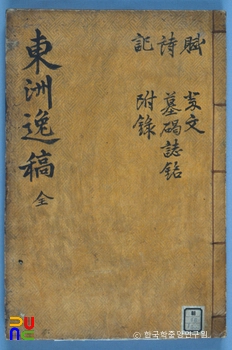 賦 祭文
詩 墓碣誌銘
記 附錄
東洲逸稿 全
© 한국학중앙연구원